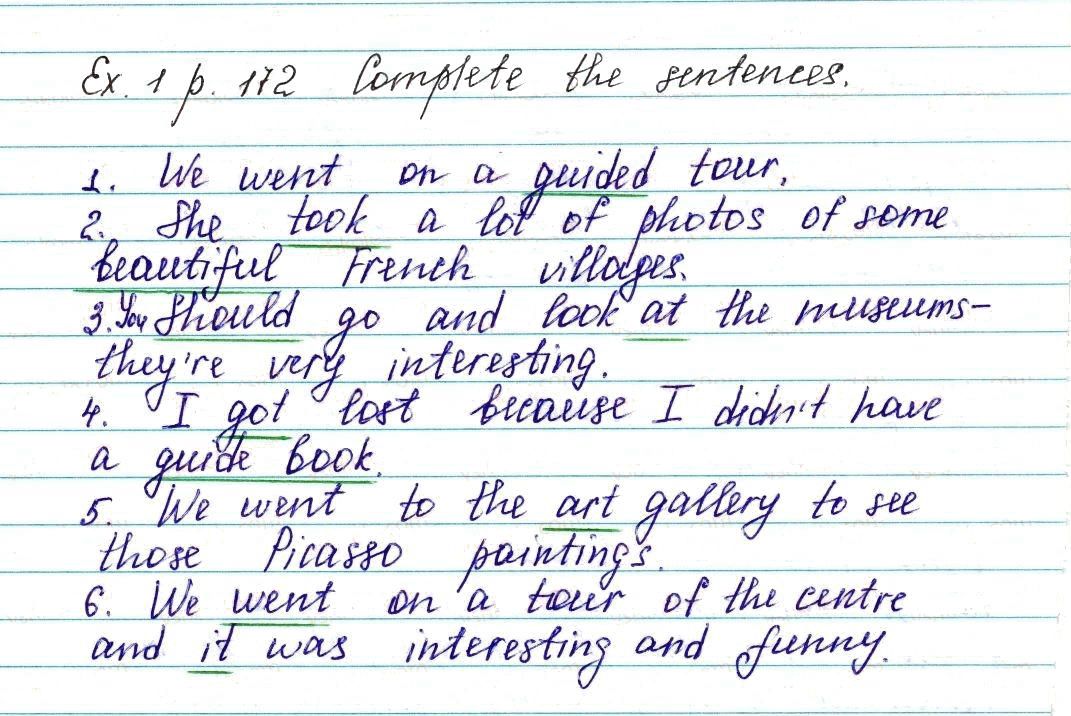 Ex. 1 p. 172 Complete the sentences.
1. We went on a guided tour.
2. She took a lot of photos of some
beautiful French villages.
3. You should go and look at the museums-
they're very interesting.
4. I got lost because I didn't have
a guide book.
5. We went to the art gallery to see
those Picasso paintings.
6. We went on a tour of the centre
and it was interesting and funny.